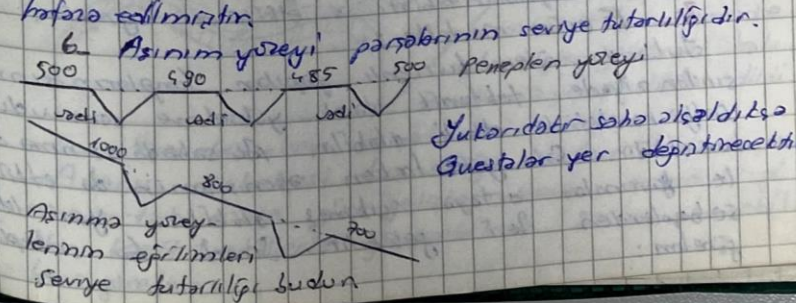 hafaza edilmiştir.
6 Aşınım yüzeyi parçalarının seviye tutarlılığıdır.
500 490 485 500 Peneplen yüzeyi
vadi vadi vadi
Yukarıdaki saha alçaldıkça
Questalar yer değiştirecekti
1000
800
700
Aşınma yüzey-
lerinin eğilimleri
seviye tutarlılığı budur